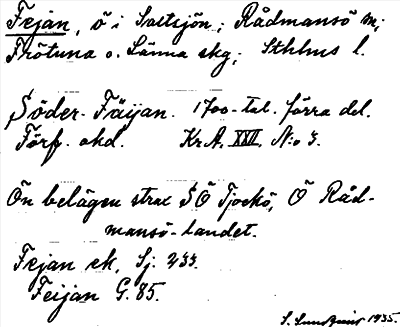 Fejan, ö i Saltsjön; Rådmansö sn;
Frötuna o. Länna skg; Sthlms l.
Söder-Fäijan. 1700-tal. förra del.
Förf. okd. Kr.A. XXII, N:o 3.
Ön belägen strax SÖ Tjockö, Ö Råd-
mansö-landet.
Fejan ek. Sj. 233.
Feijan G. 85.
S. Sundqvist 1935.